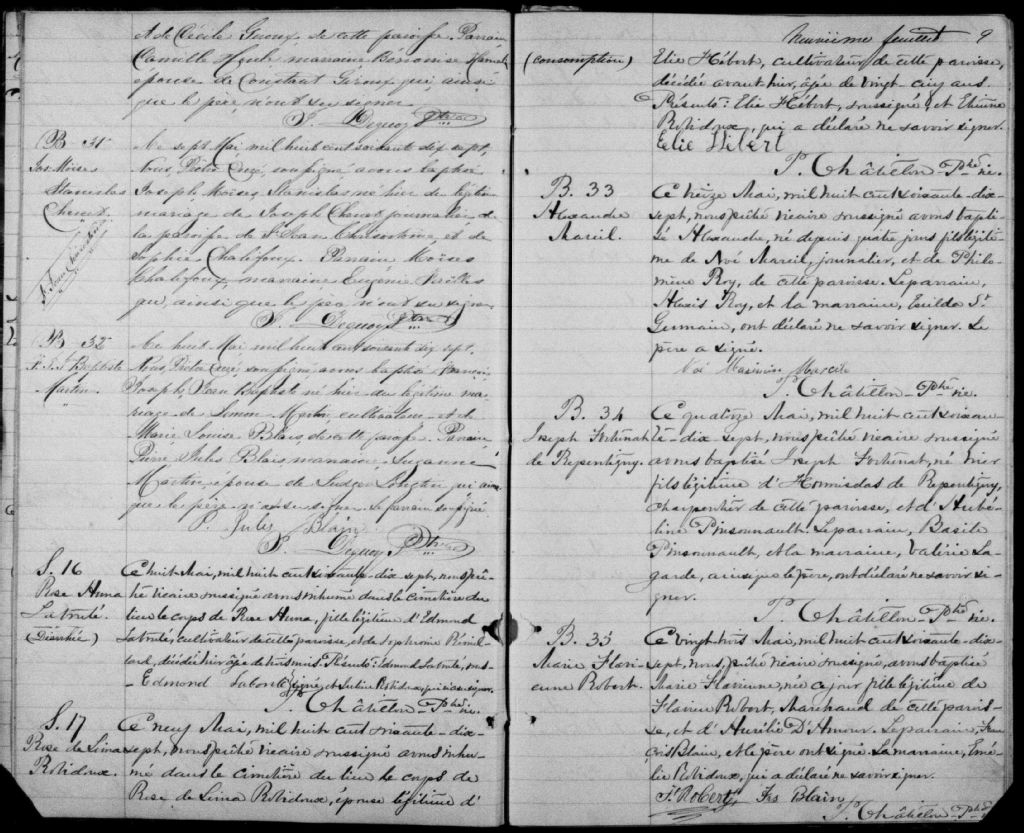 et de Cécile Giroux de cette paroisse. Parrain
Camille marraine
épouse de Constant Giroux qui, ainsi
que le père, n'ont su signer
B 31
Jos Moïse
Stanislas
Ce sept Mai mil huit cent soixante dix sept,
Nous, Prêtre Curé, soussigné avons baptisé
Joseph, Moïse, Stanislas né hier du légitime
mariage de Joseph journalier de
la paroisse de St Jean Chrysostome, et de
Sophie Chalifoux. Parrain Moïse
Chalifoux, marraine Eugénie
qui, ainsi que le père n'ont su signer
B 32
F. J. J. Baptiste
Martin
Ce huit Mai mil huit cent soixante dix sept,
Nous, Prêtre Curé, soussigné avons baptisé François,
Joseph, Jean Baptiste né hier du légitime ma-
riage de Simon Martin cultivateur et de
Marie Louise Blais de cette paroisse. Parrain
Pierre Jules Blais, marraine Suzanne
Martin, épouse de Ludger qui ainsi
que le père n'ont su signer. Le parrain soussigné.
P. Jules Blain
S. 16
Rose Anna
Labonté.
(Diarrhée)
Ce huit Mai, mil huit cent soixante-dix sept, nous prê-
tre vicaire soussigné avons inhumé dans le cimetière du
lieu le corps de Rose Anna, fille légitime d'Edmond
Labonté, cultivateur de cette paroisse, et de Sophronie Rémil-
lard, décédé hier âgée de trois mois. Présents: Edmond Labonté, sous-
Edmond Labonté signé, et Julien Robidoux, qui n'a su signer.
P. Châtillon Ptre vic.
S. 17
Rose de Lima
Robidoux.
Ce neuf Mai, mil huit cent soixante-dix-
sept, nous prêtre vicaire soussigné avons inhu-
mé dans le cimetière du lieu le corps de
Rose de Lima Robidoux, épouse légitime d'
Neuvième feuillet 9
(consomption)
Elie Hébert, cultivateur, de cette paroisse,
décédée avant hier, âgée de vingt-cinq ans.
Présents: Elie Hébert, soussigné, et Etienne
Robidoux, qui a déclaré ne savoir signer.
Elie Hébert
P. Châtillon Ptre vic.
B. 33
Alexandre
Marcil.
Ce treize Mai, mil huit cent soixante-dix-
sept, nous prêtre vicaire soussigné avons bapti-
sé Alexandre, né depuis quatre jours fils légiti-
me de Noé Marcil, journalier, et de Philo-
mène Roy, de cette paroisse. Le parrain,
Alexis Roy, et la marraine, Exilda St
Germain, ont déclaré ne savoir signer. Le
père a signé.
Noé Maximin Marcile
P. Châtillon Ptre vic.
B. 34
Joseph Fortunat
de Repentigny.
Ce quatorze Mai, mil huit cent soixan-
te-dix sept, nous prêtre vicaire soussigné
avons baptisé Joseph Fortunat, né hier
fils légitime d'Hormisdas de Repentigny,
charpentier de cette paroisse, et d'Aubé-
line Pinsonnault. Le parrain, Basile
Pinsonnault, et la marraine, Valérie La-
garde, ainsi que le père, ont déclaré ne savoir si-
gner.
P. Châtillon Ptre vic.
B. 35
Marie Flavi-
enne Robert.
Ce vingt-trois Mai, mil huit cent soixante-dix-
sept, nous, prêtre vicaire soussigné, avons baptisé
Marie Flavienne, née ce jour fille légitime de
Flavien Robert, Marchand de cette parois-
se, et d'Aurélie D'Amour. Le parrain, Fran-
çois Blain, et le père ont signé. La marraine, Emé-
lie Robidoux, qui a déclaré ne savoir signer.
F. Robert Frs Blain
P. Châtillon Ptre